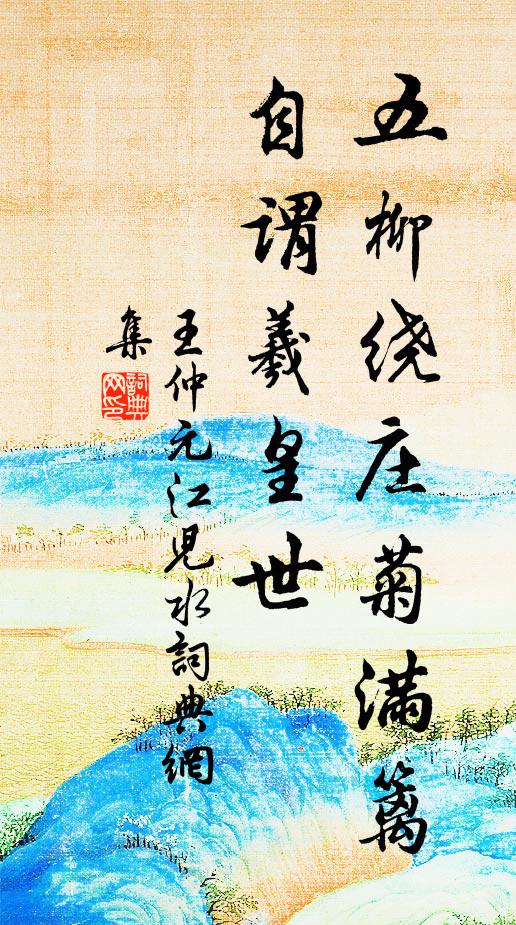 五柳绕庄菊满篱
自谓羲皇世
王仲元江儿水詞典網
集
詞典
网印